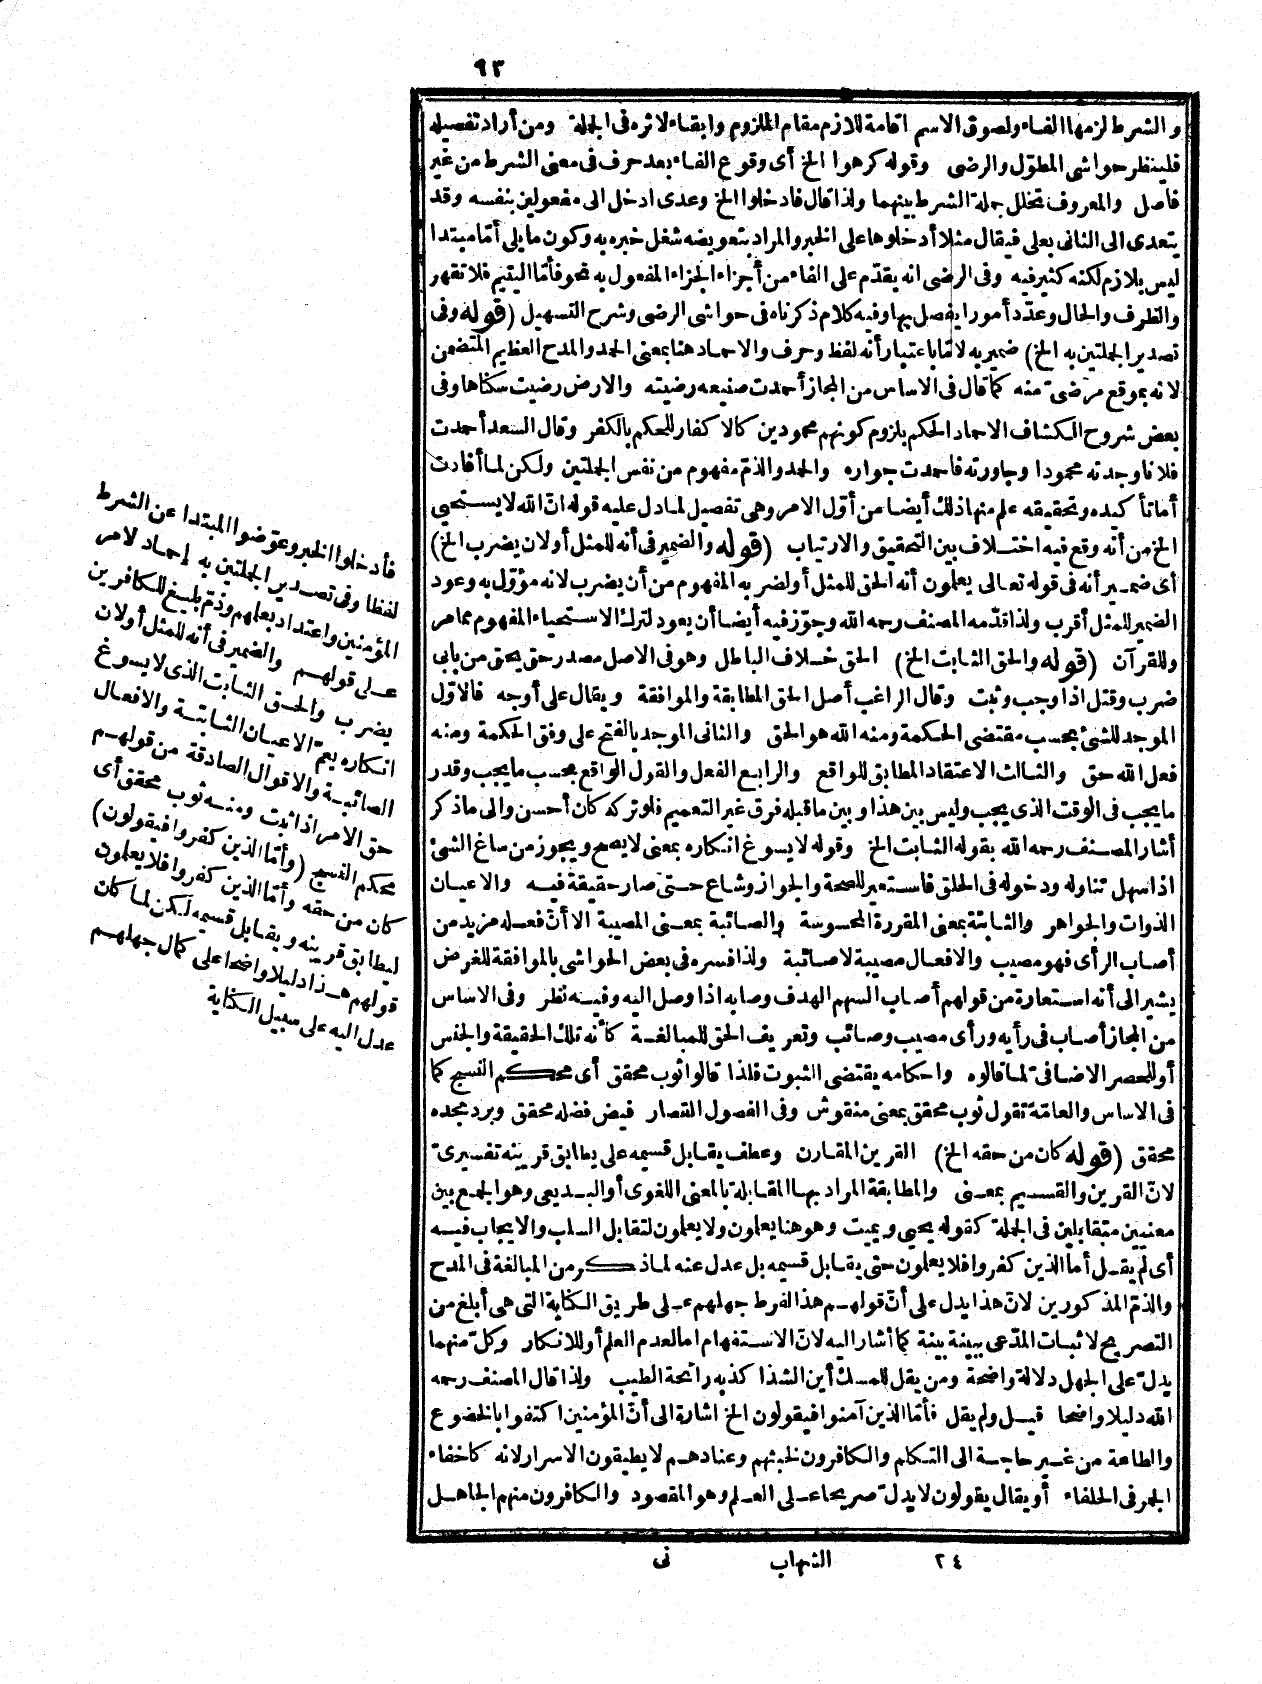 ٩٣
والشرط لزمها الفاء ولصوق الاسم اقامة للازم مقام الملزوم وابقاء لاثره فى الجملة ومن أراد تفصيله
فلينظر حواشى المطوّل والرضى وقوله كرهوا الخ أى وقوع الفاء بعد حرف فى معنى الشرط من غير
فاصل والمعروف تخلل جملة الشرط بينهما ولذا قال فادخلوا الخ وعدى ادخل الى مفعولين بنفسه وقد
يتعدى الى الثانى بعلى فيقال مثلا أدخلوها على الخبر والمراد بتعويضه شغل خبره به وكون ما يلى أمّا مبتدا
ليس بلازم لكنه كثير فيه وفى الرضى انه يقدّم على الفاء من أجزاء الجزاء المفعول به نحو فأمّا اليتيم فلا تقهر
والظرف والحال وعدّد أمورا يفصل بها وفيه كلام ذكرناه فى حواشى الرضى وشرح التسهيل (قوله وفى
تصدير الجملتين به الخ) ضمير به لامّا باعتبار أنه لفظ وحرف والاحماد هنا بمعنى الحمد والمدح العظيم المتضمن
لانه بموقع مرضىّ منه كما قال فى الاساس من المجاز أحمدت صنيعه رضيته والارض رضيت سكناها وفى
بعض شروح الكشاف الاحماد الحكم بلزوم كونهم محمودين كالاكفار للحكم بالكفر وقال السعد أحمدت
فلانا وجدته محمودا وجاورته فاحمدت جواره والحمد والذمّ مفهوم من نفس الجملتين ولكن لما أفادت
أما تأكيده وتحقيقه علم منها ذلك أيضا من أوّل الامر وهى تفصيل لما دل عليه قوله انّ الله لا يستحيى
الخ من أنه وقع فيه اختلاف بين التحقيق والارتياب (قوله والضمير فى أنه للمثل أولان يضرب الخ)
أى ضمير أنه فى قوله تعالى يعلمون أنه الحق للمثل أو لضربه المفهوم من أن يضرب لانه مؤوّل به وعود
الضمير للمثل أقرب ولذا قدّمه المصنف رحمه الله وجوّز فيه أيضا أن يعود لترك الاستحياء المفهوم مما مر
وللقرآن (قوله والحق الثابت الخ) الحق خلاف الباطل وهو فى الاصل مصدر حق يحق من بابى
ضرب وقتل اذا وجب وثبت وقال الراغب أصل الحق المطابقة والموافقة ويقال على أوجه فالاوّل
الموجد للشئ بحسب مقتضى الحكمة ومنه الله هو الحق والثانى الموجد بالفتح على وفق الحكمة ومنه
فعل الله حق والثالث الاعتقاد المطابق للواقع والرابع الفعل والقول الواقع بحسب ما يجب وقدر
ما يجب فى الوقت الذى يجب وليس بين هذا وبين ما قبله فرق غير التعميم فلو تركه كان أحسن والى ما ذكر
أشار المصنف رحمه الله بقوله الثابت الخ وقوله لا يسوغ انكاره بمعنى لا يصح ويجوز من ساغ الشئ
اذا سهل تناوله ودخوله فى الحلق فاستعير للصحة والجواز وشاع حتى صار حقيقة فيه والاعيان
الذوات والجواهر والثابتة بمعنى المقررة المحسوسة والصائبة بمعنى المصيبة الا أنّ فعله مزيد من
أصاب الرأى فهو مصيب والافعال مصيبة لا صائبة ولذا فسره فى بعض الحواشى بالموافقة للغرض
يشير الى أنه استعارة من قولهم أصاب السهم الهدف وصابه اذا وصل اليه وفيه نظر وفى الاساس
من المجاز أصاب فى رأيه ورأى مصيب وصائب وتعريف الحق للمبالغة كأنه تلك الحقيقة والجنس
أو للحصر الاضافىّ لما قالوه واحكامه يقتضى الثبوت فلذا قالوا ثوب محقق أى محكم النسج كما
فى الاساس والعامّة تقول ثوب محقق بمعنى منقوش وفى الفصول القصار قيض فضله محقق وبرد مجده
محقق (قوله كان من حقه الخ) القرين المقارن وعطف يقابل قسيمه على يطابق قرينه تفسيرىّ
لانّ القرين والقسيم بمعنى والمطابقة المراد بها المقابلة بالمعنى اللغوى أو البديعى وهو الجمع بين
معنيين متقابلين فى الجملة كقوله يحيى ويميت وهو هنا يعلمون ولا يعلمون لتقابل السلب والايجاب فيه
أى لم يقل أما الذين كفروا فلا يعلمون حتى يقابل قسيمه بل عدل عنه لما ذكر من المبالغة فى المدح
والذمّ المذكورين لانّ هذا يدل على أنّ قولهم هذا لفرط جهلهم على طريق الكناية التى هى أبلغ من
التصريح لاثبات المدّعى ببينة بينة كما أشار اليه لانّ الاستفهام امّا لعدم العلم أو للانكار وكلّ منهما
يدلّ على الجهل دلالة واضحة ومن يقل للمسك أين الشذا كذبه رائحة الطيب ولذا قال المصنف رحمه
الله دليلا واضحا قيل ولم يقل فأمّا الذين آمنوا فيقولون الخ اشارة الى أنّ المؤمنين اكتفوا بالخضوع
والطاعة من غير حاجة الى التكلم والكافرون لخبثهم وعنادهم لا يطيقون الاسرار لانه كاخفاء
الجمر فى الحلفاء أو يقال يقولون لا يدلّ صريحا على العلم وهو المقصود والكافرون منهم الجاهل
فأدخلوا الخبر وعوّضوا المبتدا عن الشرط
لفظا وفى تصدير الجملتين به إحماد لامر
المؤمنين واعتداد بعلمهم وذمّ بليغ للكافرين
على قولهم والضمير فى أنه للمثل أولان
يضرب والحق الثابت الذى لا يسوغ
انكاره يعمّ الاعيان الثابتة والافعال
الصائبة والاقوال الصادقة من قولهم
حق الامر اذا ثبت ومنه ثوب محقق أى
محكم النسج (وأمّا الذين كفروا فيقولون)
كان من حقه وأمّا الذين كفروا فلا يعلمون
ليطابق قرينه ويقابل قسيمه لكن لما كان
قولهم هذا دليلا واضحا على كمال جهلهم
عدل اليه على سبيل الكناية
٢٤ الشهاب نى